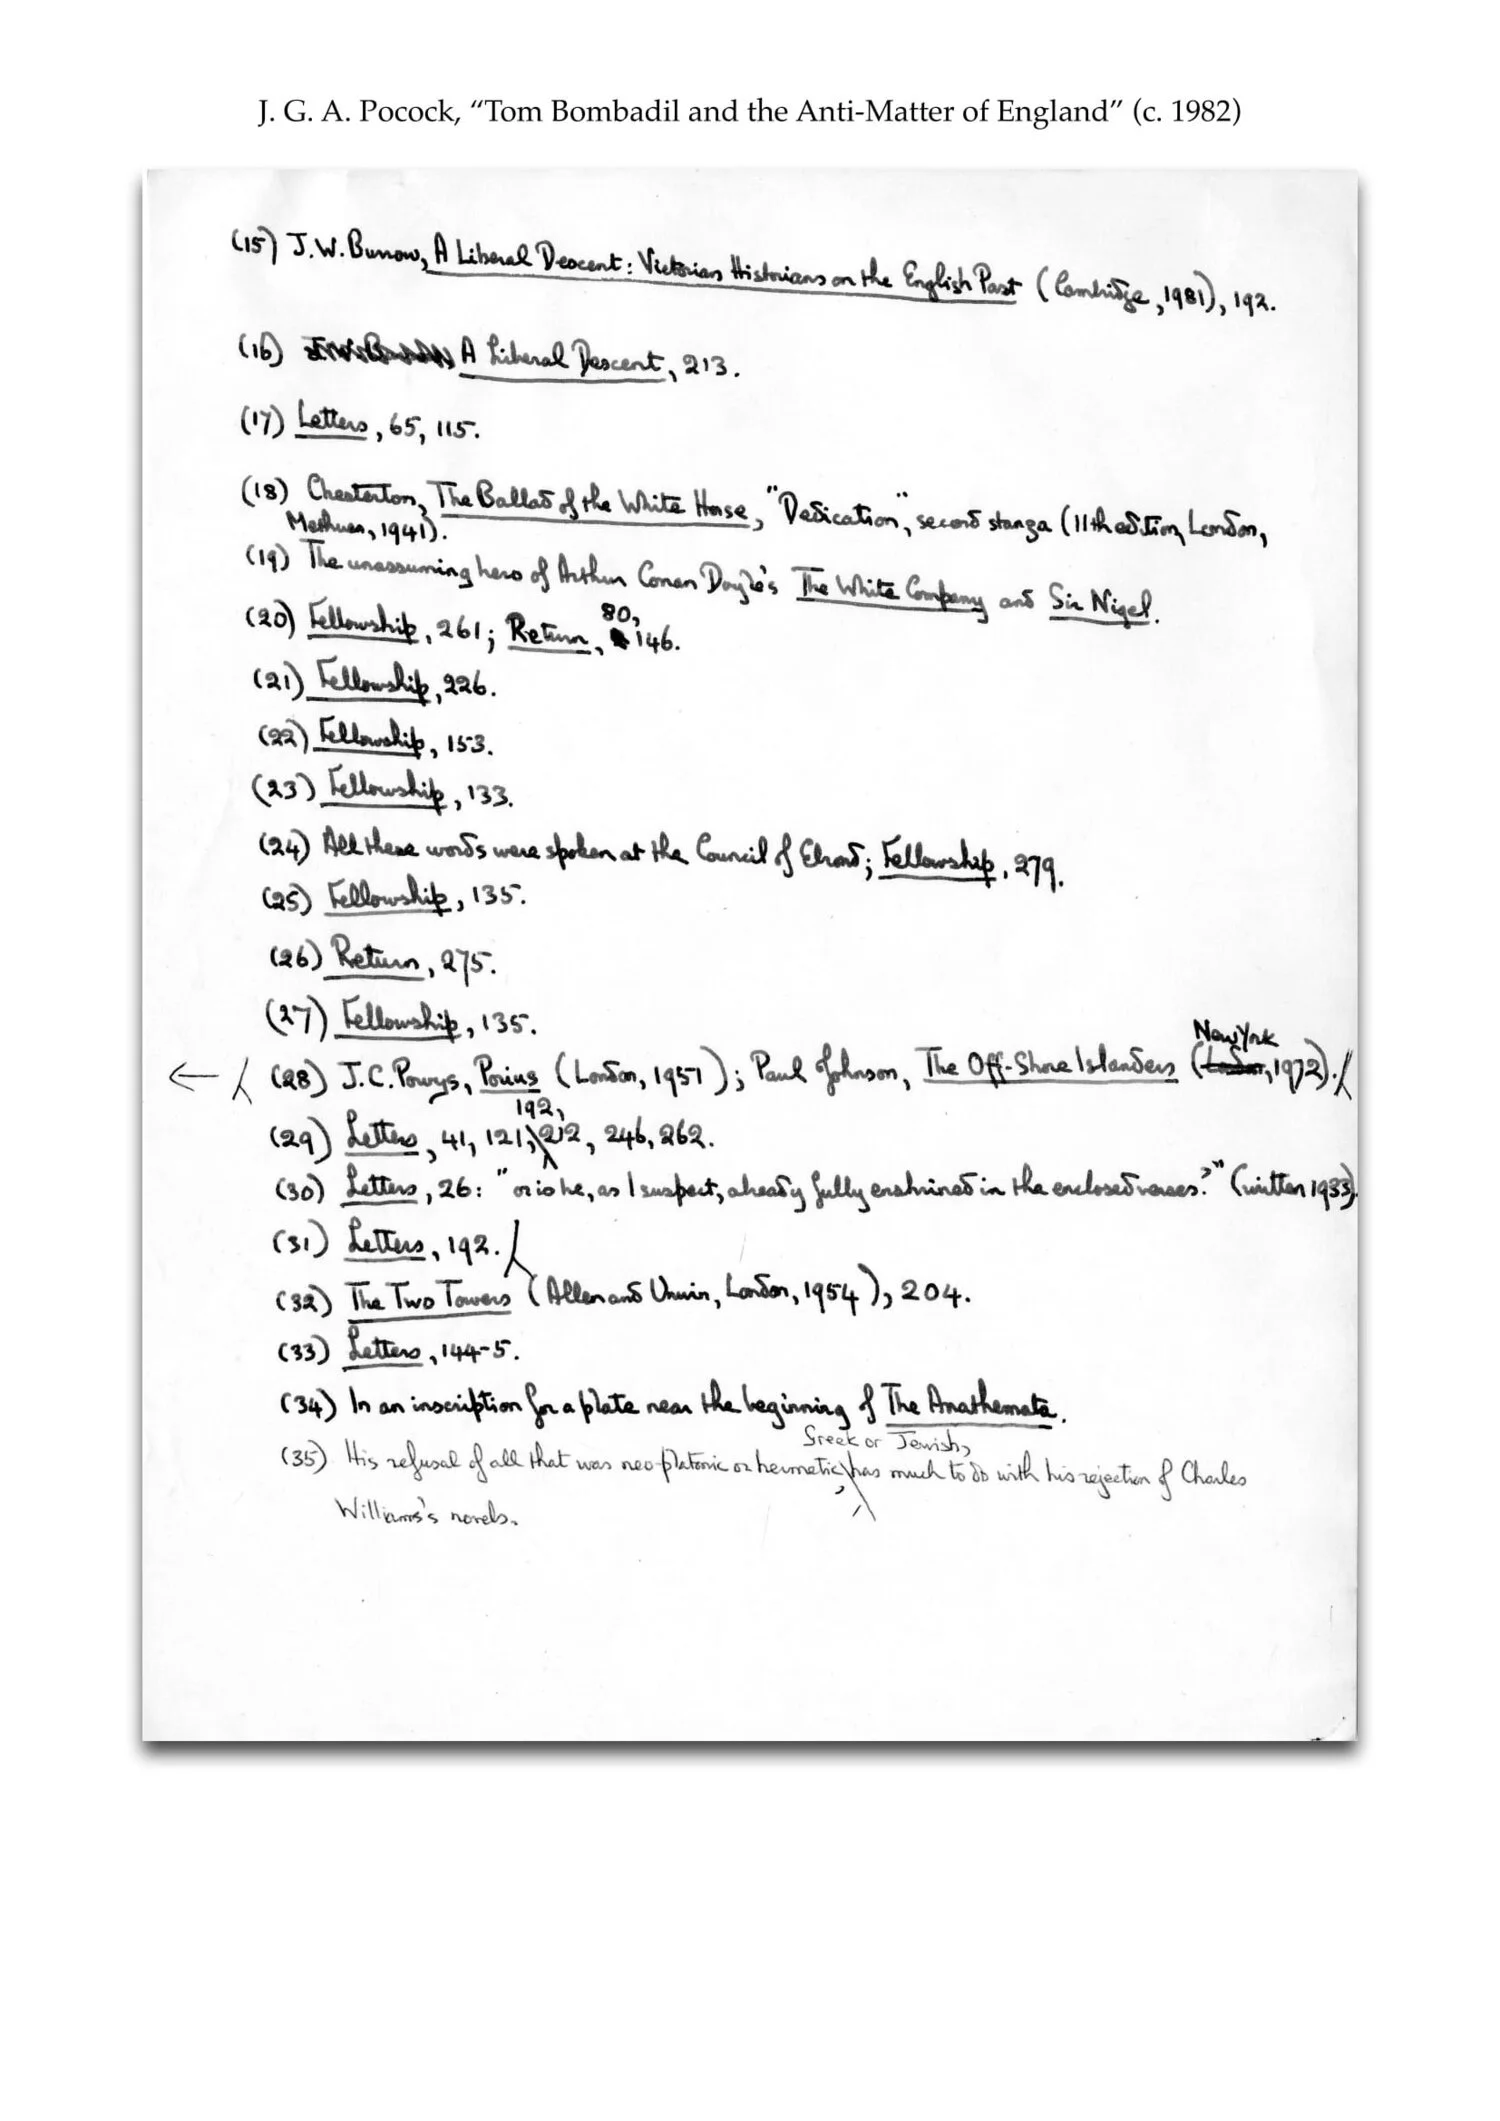 J. G. A. Pocock, “Tom Bombadil and the Anti-Matter of England” (c. 1982)
(15) J.W. Burrow, A Liberal Descent: Victorian Historians on the English Past (Cambridge, 1981), 192.
(16) A Liberal Descent, 213.
(17) Letters, 65, 115.
(18) Chesterton, The Ballad of the White Horse, "Dedication", second stanza (11th edition, London,
Methuen, 1941).
(19) The unassuming hero of Arthur Conan Doyle's The White Company and Sir Nigel.
80,
(20) Fellowship, 261; Return, 146.
(21) Fellowship, 226.
(22) Fellowship, 153.
(23) Fellowship, 133.
(24) All these words were spoken at the Council of Elrond; Fellowship, 279.
(25) Fellowship, 135.
(26) Return, 275.
(27) Fellowship, 135.
New York
← (28) J.C. Powys, Porius (London, 1951); Paul Johnson, The Off-Shore Islanders (London, 1972).
192,
(29) Letters, 41, 121, 212, 246, 262.
(30) Letters, 26: "or is he, as I suspect, already fully enshrined in the enclosed verses?" (written 1933).
(31) Letters, 192.
(32) The Two Towers (Allen and Unwin, London, 1954), 204.
(33) Letters, 144-5.
(34) In an inscription for a plate near the beginning of The Anathemata.
Greek or Jewish,
(35) His refusal of all that was neo-platonic or hermetic, has much to do with his rejection of Charles
Williams's novels.